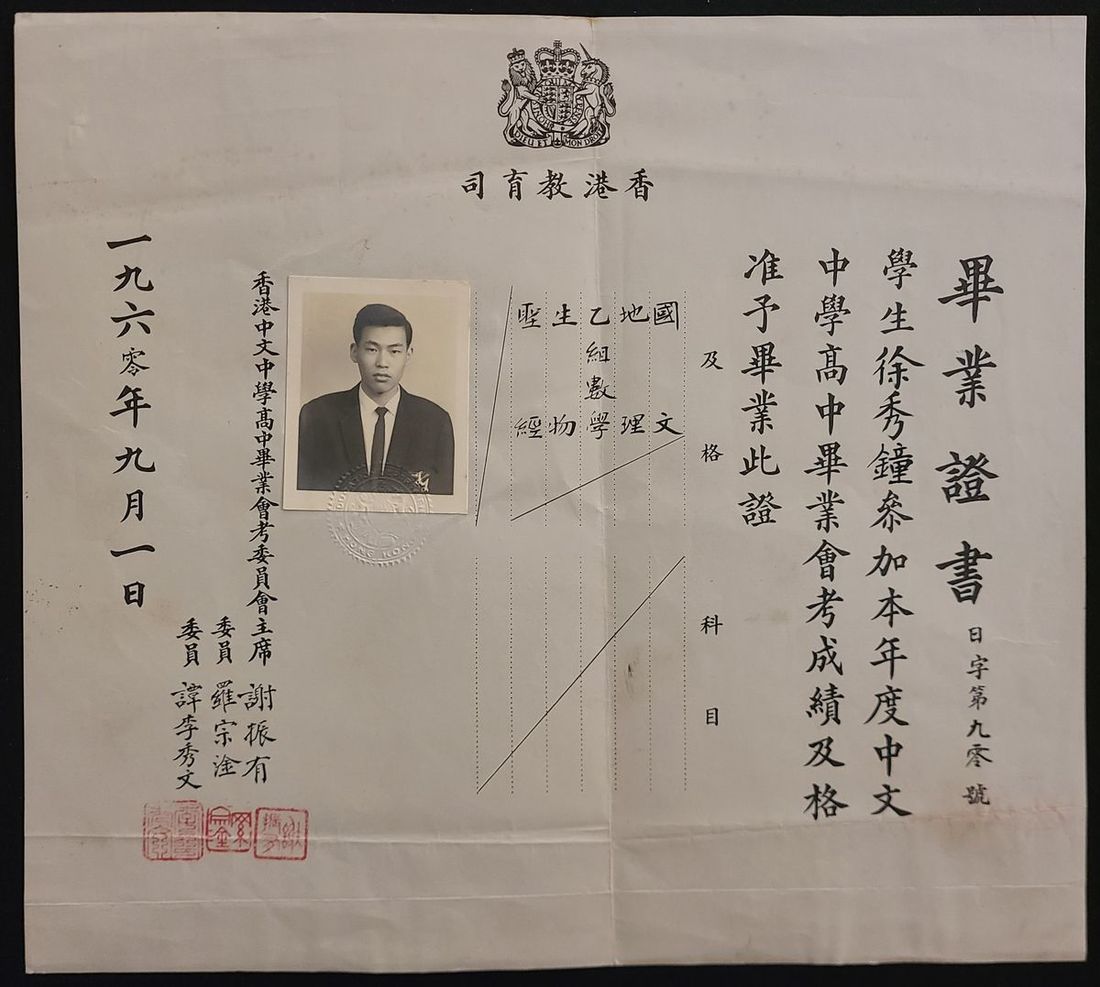 DIEU ET MON DROIT
香港教育司
畢業證書
日字第九零號
學生徐秀鐘參加本年度中文
中學高中畢業會考成績及格
准予畢業此證
及格科目
國文
地理
乙組數學
生物
聖經
香港中文中學高中畢業會考委員會主席 謝振有
委員 羅宗淦
委員 譚李秀文
一九六零年九月一日
HONG KONG